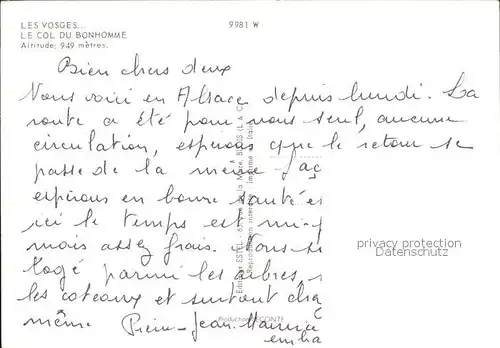 LES VOSGES...
9981 W
LE COL DU BONHOMME
Altitude: 949 mètres.
Bien chers deux
Nous voici en Alsace depuis lundi. La
route a été pour nous seul, aucune
circulation, espérons que le retour se
passe de la même faç
espérons en bonne santé e
ici le temps est mi-
mais assez frais. Nous s
logé parmi les arbres,
les coteaux et surtout cha
même Pierre-Jean-Maurice
emba
privacy protection
Datenschutz
Production LECONTE